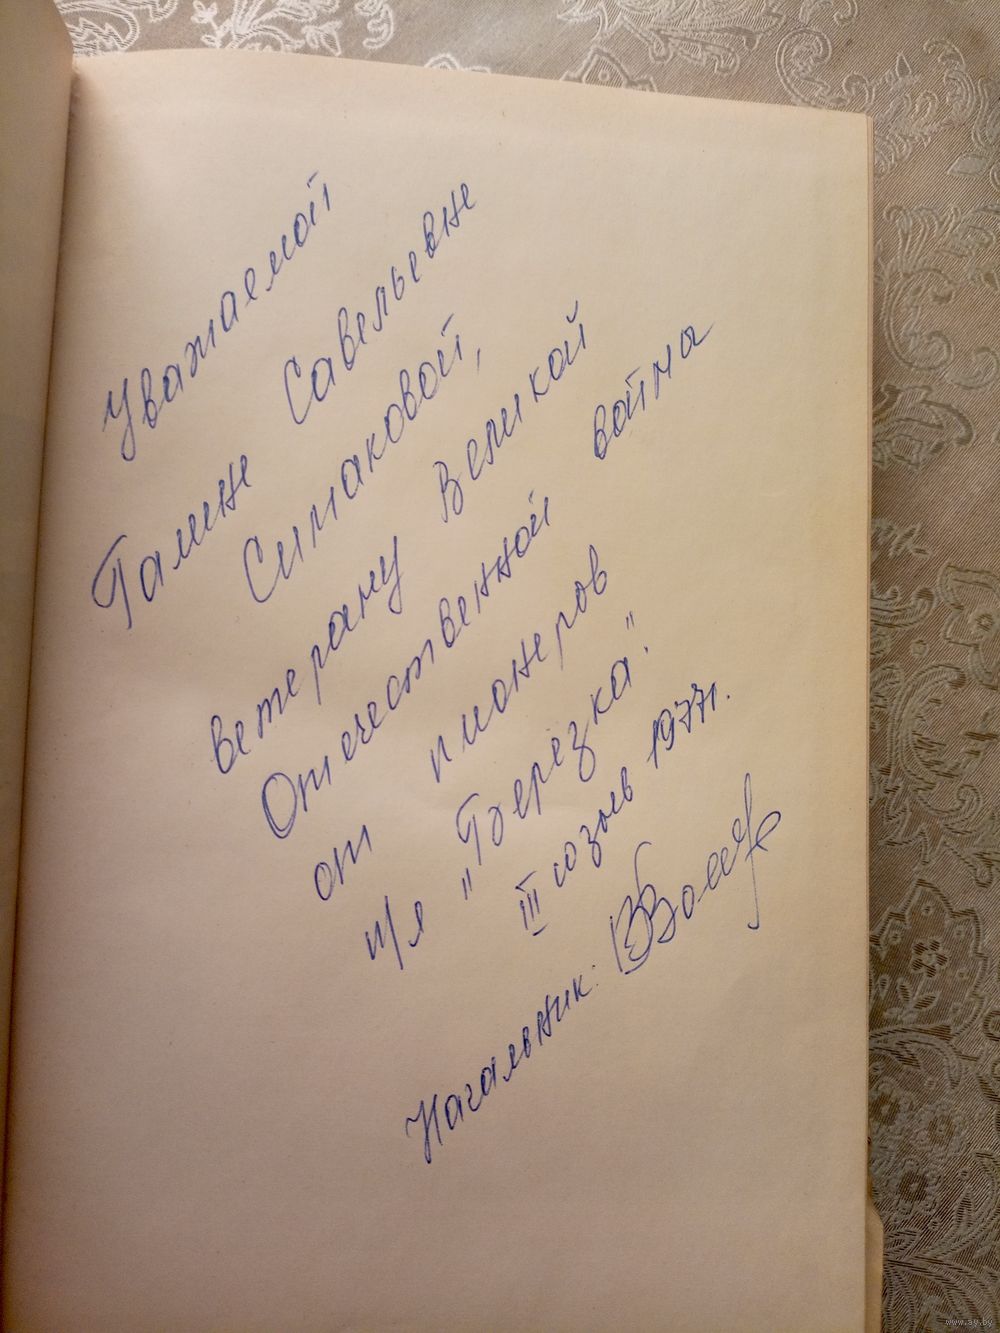 Уважаемой
Галине Савельевне
Симаковой,
ветерану Великой
Отечественной войны
от пионеров
п/л "Берёзка".
III созыв 1977г.
Начальник:
www.ay.by